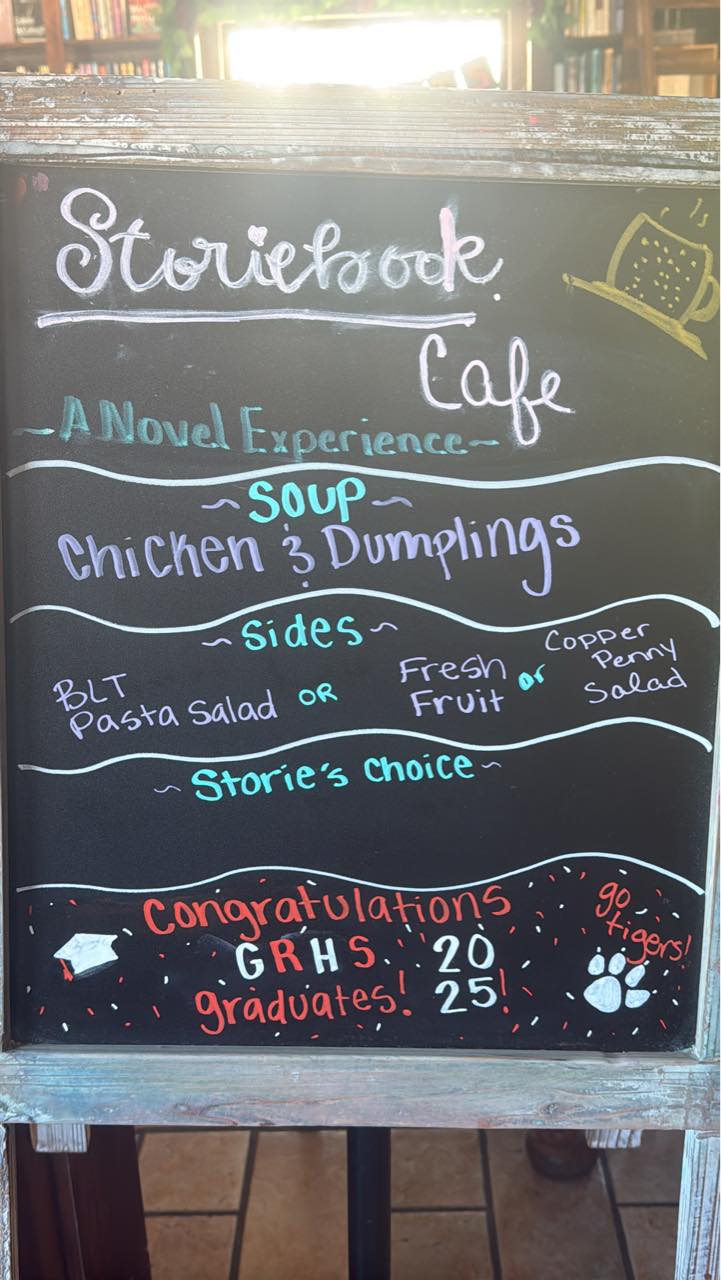 Storiebook
Cafe
~A Novel Experience~
~Soup~
Chicken & Dumplings
~Sides~
BLT
Pasta Salad
OR
Fresh
Fruit
or
Copper
Penny
Salad
~Storie's Choice~
Congratulations
GRHS 20
graduates! 25!
go
tigers!